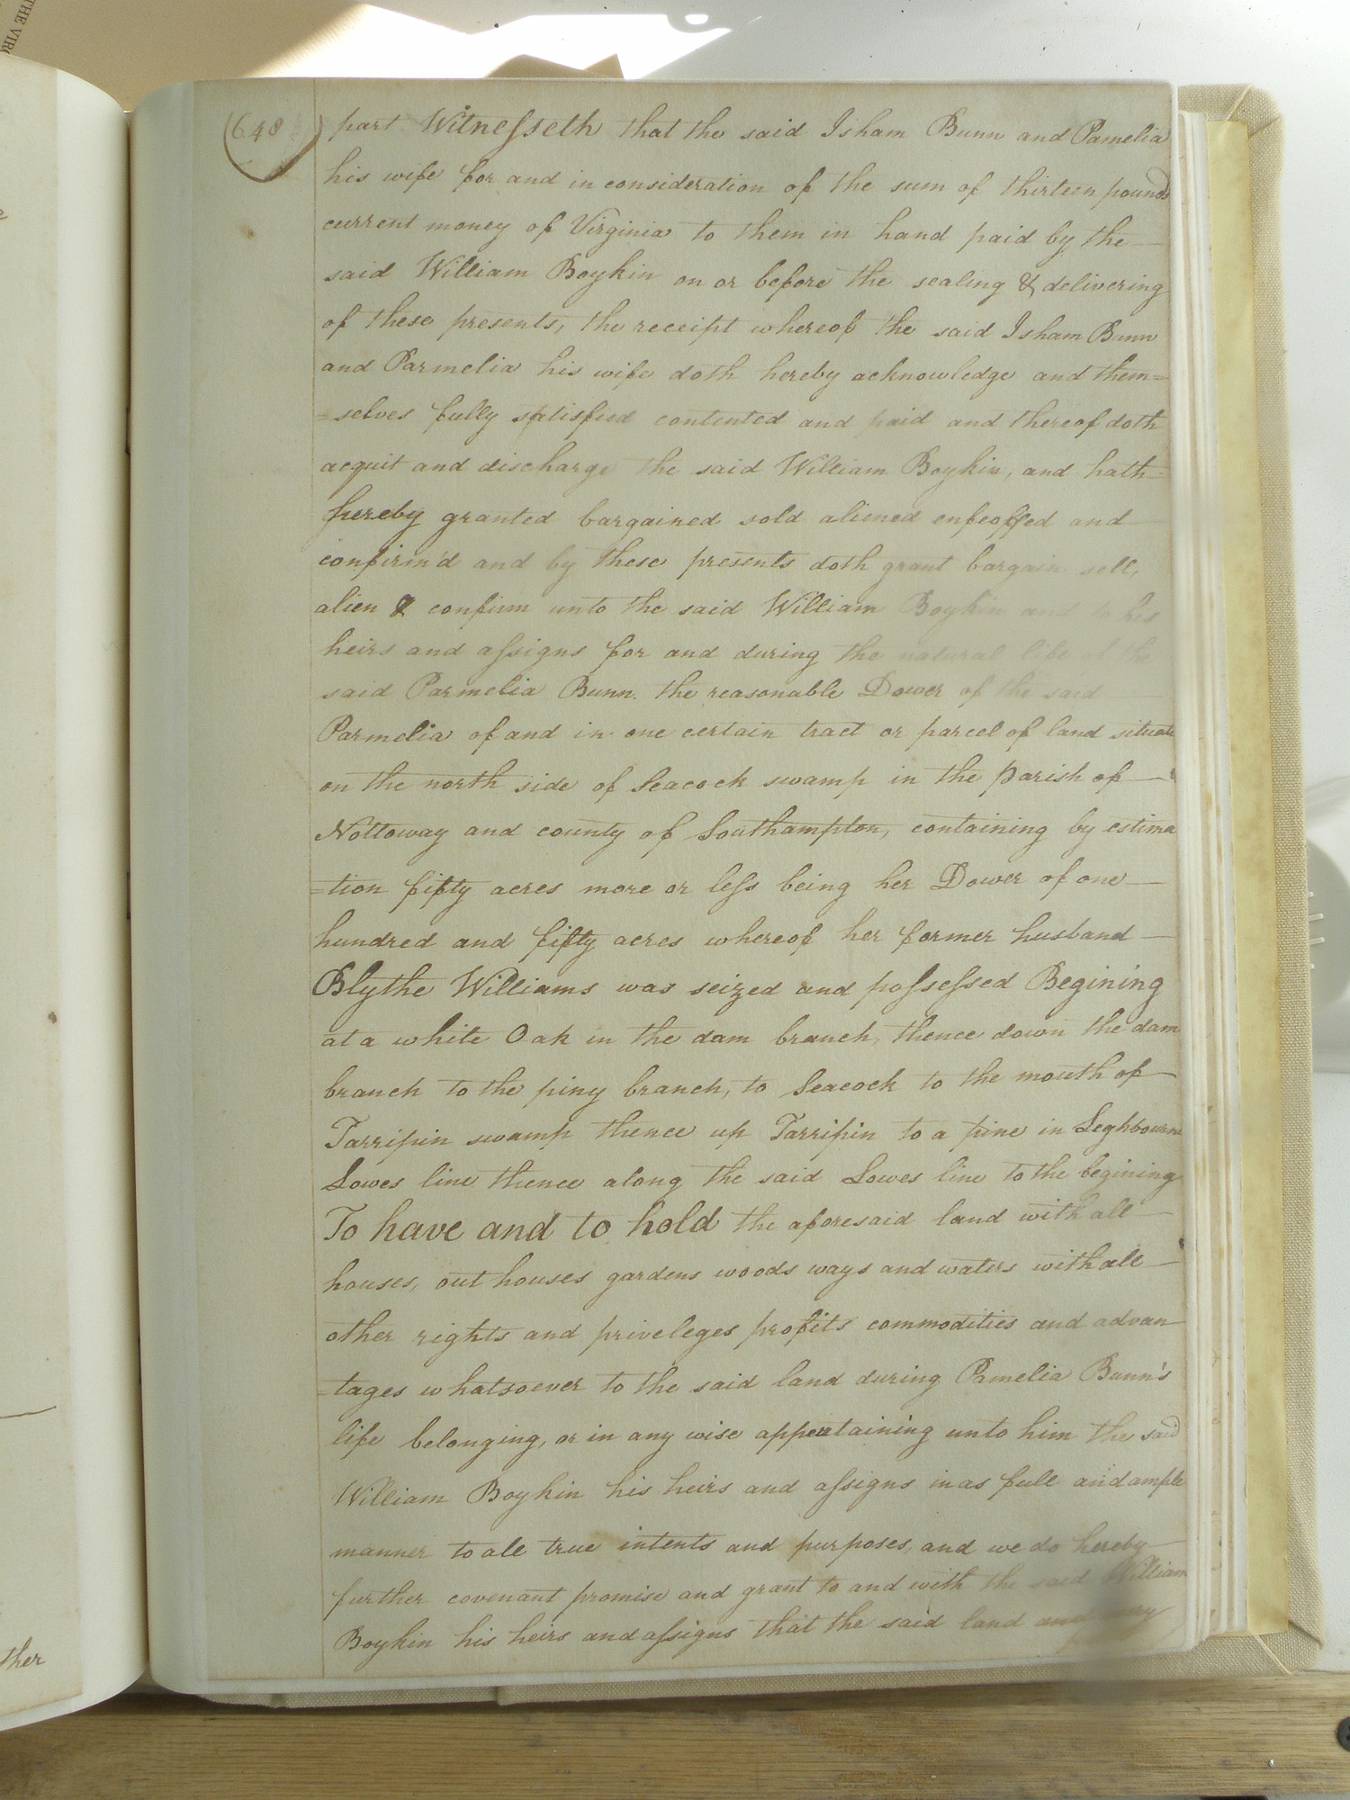 THE VIR
(648)
part Witnesseth that the said Isham Bunn and Pamelia
his wife for and in consideration of the sum of thirteen pounds
current money of Virginia to them in hand paid by the
said William Boykin on or before the sealing & delivering
of these presents, the receipt whereof the said Isham Bunn
and Parmelia his wife doth hereby acknowledge and them=
=selves fully satisfied contented and paid and thereof doth
acquit and discharge the said William Boykin, and hath
hereby granted bargained sold aliened enfeoffed and
confirm'd and by these presents doth grant bargain sell,
alien & confirm unto the said William Boykin and to his
heirs and assigns for and during the natural life of the
said Parmelia Bunn the reasonable Dower of the said
Parmelia of and in one certain tract or parcel of land situate
on the north side of Seacock swamp in the Parish of
Nottoway and county of Southampton, containing by estima
=tion fifty acres more or less being her Dower of one
hundred and fifty acres whereof her former husband
Blythe Williams was seized and possessed Begining
at a white Oak in the dam branch, thence down the dam
branch to the piny branch, to Seacock to the mouth of
Tarripin swamp thence up Tarripin to a pine in Leghbourn
Lowes line thence along the said Lowes line to the begining
To have and to hold the aforesaid land with all
houses, out houses gardens woods ways and waters with all
other rights and priveleges profits commodities and advan
=tages whatsoever to the said land during Pamelia Bunn's
life belonging, or in any wise appertaining unto him the said
William Boykin his heirs and assigns in as full and ample
manner to all true intents and purposes, and we do hereby
further covenant promise and grant to and with the said William
Boykin his heirs and assigns that the said land and
ther